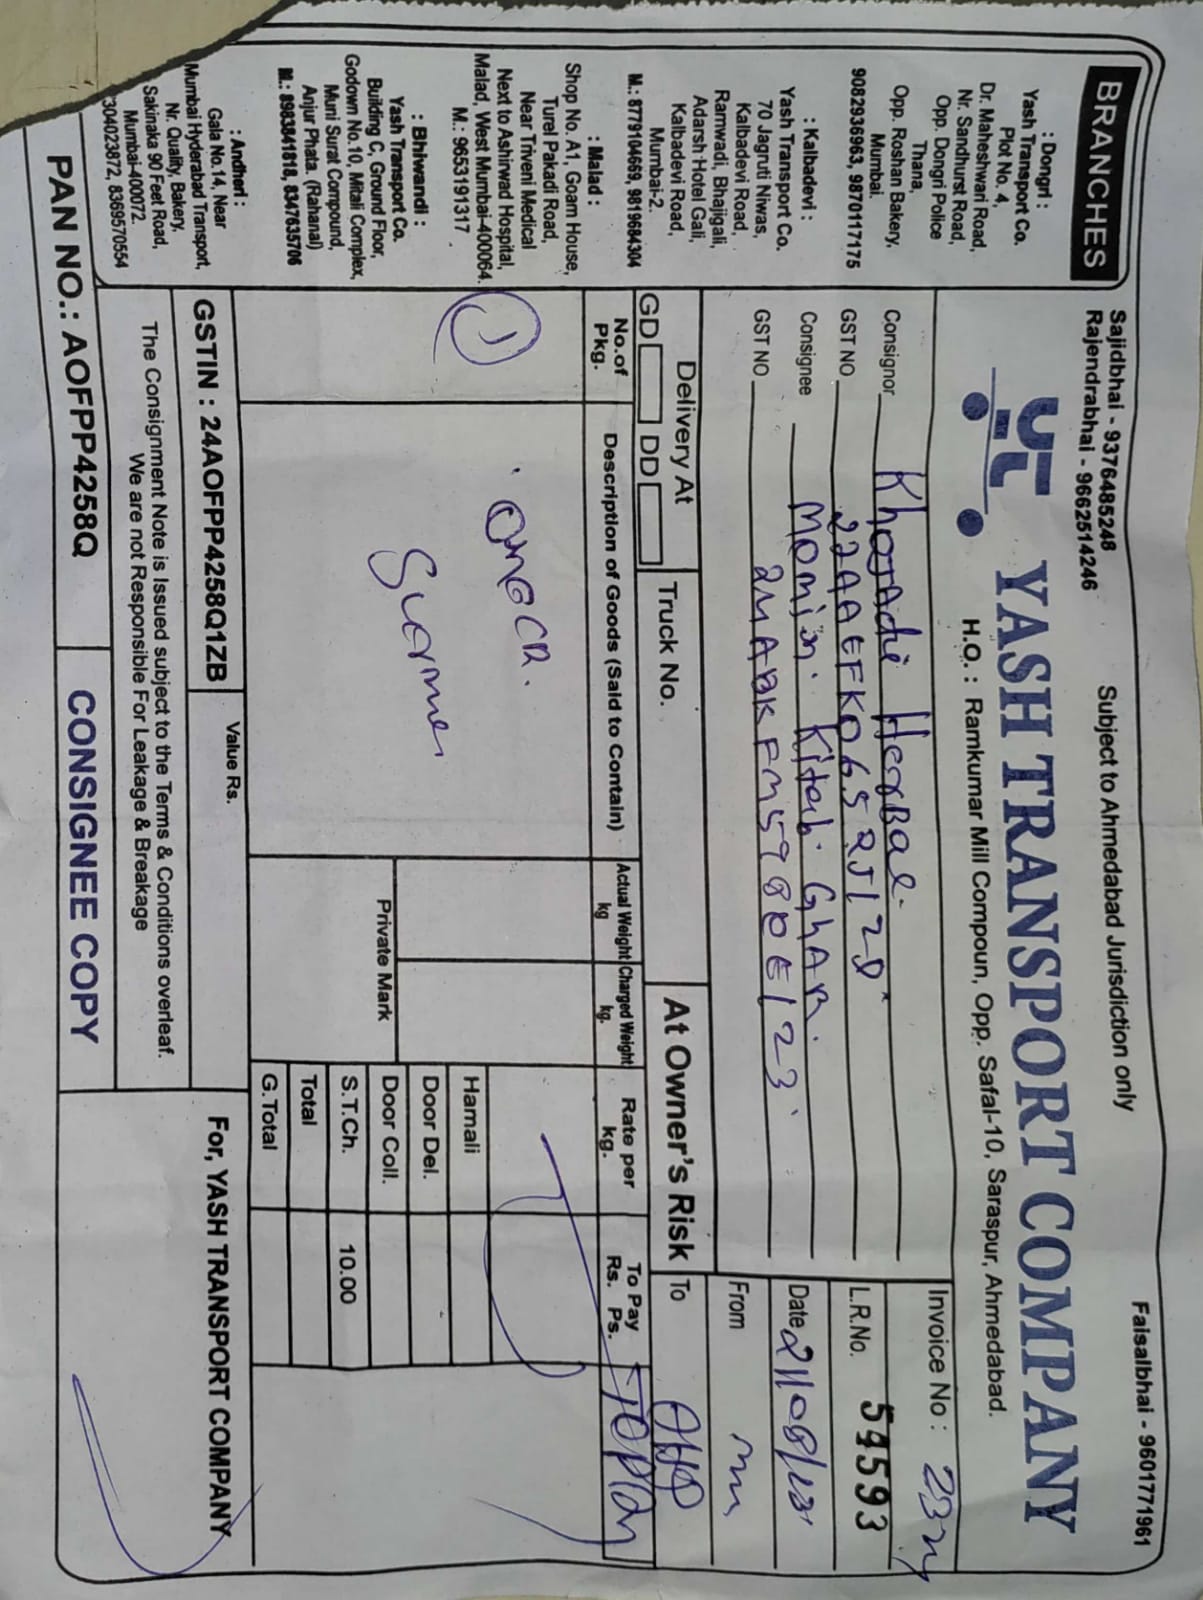 Sajidbhai - 9376485248
Rajendrabhai - 9662514246
Subject to Ahmedabad Jurisdiction only
Faisalbhai - 9601771961
BRANCHES
: Dongri :
Yash Transport Co.
Plot No. 4,
Dr. Maheshwari Road,
Nr. Sandhurst Road,
Opp. Dongri Police
Thana,
Opp. Roshan Bakery,
Mumbai.
9082936963, 9870117175
: Kalbadevi :
Yash Transport Co.
70 Jagruti Niwas,
Kalbadevi Road,
Ramwadi, Bhajigali,
Adarsh Hotel Gali,
Kalbadevi Road,
Mumbai-2.
M.: 8779104669, 9819684304
: Malad :
Shop No. A1, Goam House,
Turel Pakadi Road,
Near Triveni Medical
Next to Ashirwad Hospital,
Malad, West Mumbai-400064.
M.: 9653191317
: Bhiwandi :
Yash Transport Co.
Building C, Ground Floor,
Godown No.10, Mitali Complex,
Muni Surat Compound,
Anjur Phata. (Rahanal)
M.: 8983841818, 8347835706
: Andheri :
Gala No.14, Near
Mumbai Hyderabad Transport,
Nr. Quality, Bakery,
Sakinaka 90 Feet Road,
Mumbai-400072.
304023872, 8369570554
YASH TRANSPORT COMPANY
H.O. : Ramkumar Mill Compoun, Opp. Safal-10, Saraspur, Ahmedabad.
Consignor Herbal.
GST NO
Consignee Momin Kitab GhAR.
GST NO
Invoice No :
L.R.No. 54593
Date
From
To
Delivery At
GD DD
Truck No.
At Owner's Risk
No.of Pkg.
Description of Goods (Said to Contain)
Actual Weight kg
Charged Weight kg.
Rate per kg.
To Pay Rs. Ps.
1
Hamali
Door Del.
Door Coll.
S.T.Ch. 10.00
Total
G.Total
Private Mark
GSTIN : 24AOFPP4258Q1ZB
Value Rs.
The Consignment Note is Issued subject to the Terms & Conditions overleaf.
We are not Responsible For Leakage & Breakage
For, YASH TRANSPORT COMPANY
PAN NO.: AOFPP4258Q
CONSIGNEE COPY